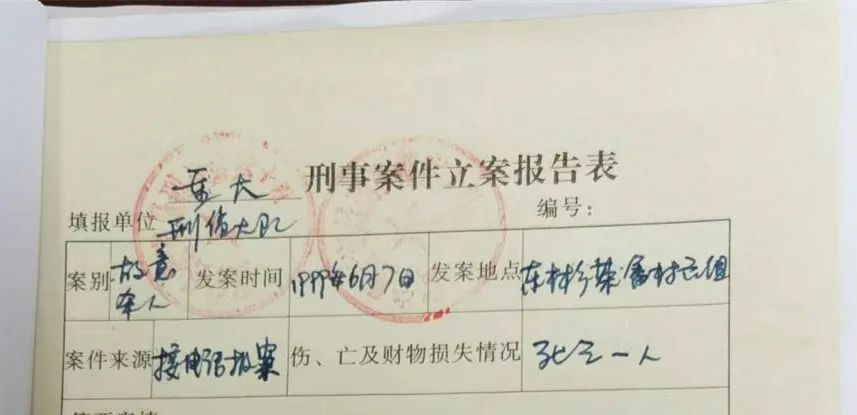 刑事案件立案报告表
填报单位 刑侦大队 编号：
案别 故意杀人 发案时间 1999年6月7日 发案地点 东林乡
案件来源 接电话报案 伤、亡及财物损失情况 死亡一人